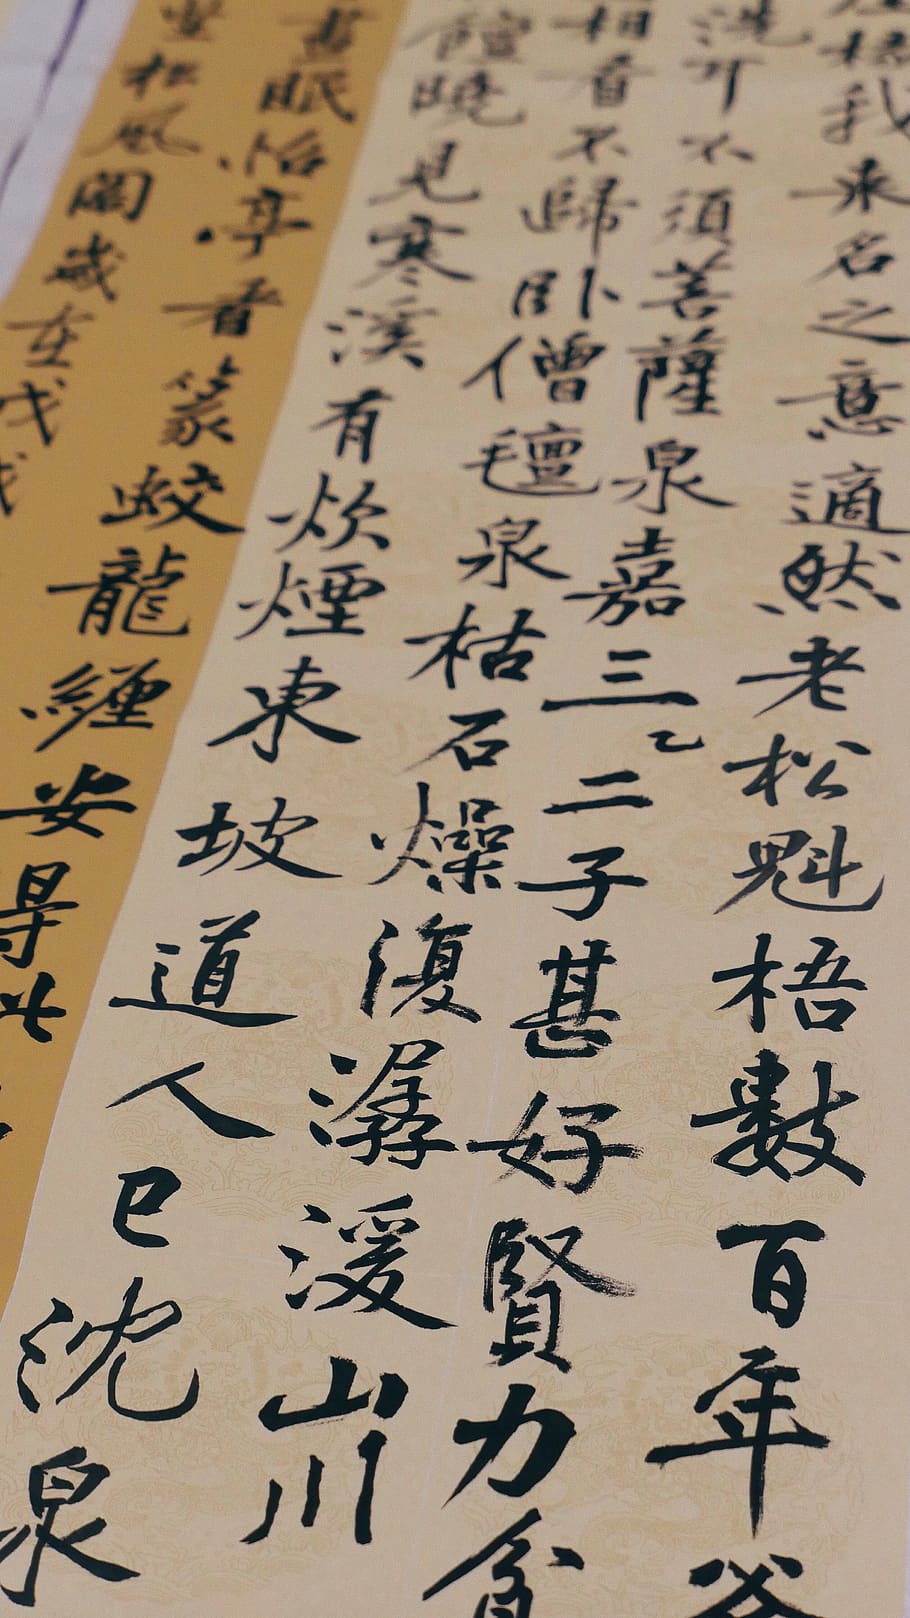 椽我來名之意適然老松魁梧數百年斧
洗耳不須菩薩泉嘉三乙二子甚好賢力貧
相看不歸臥僧氊泉枯石燥復潺湲山川
饘曉見寒溪有炊煙東坡道人已沈泉
晝眠怡亭看篆蛟龍纏安得此
松風閣歲在戊戌